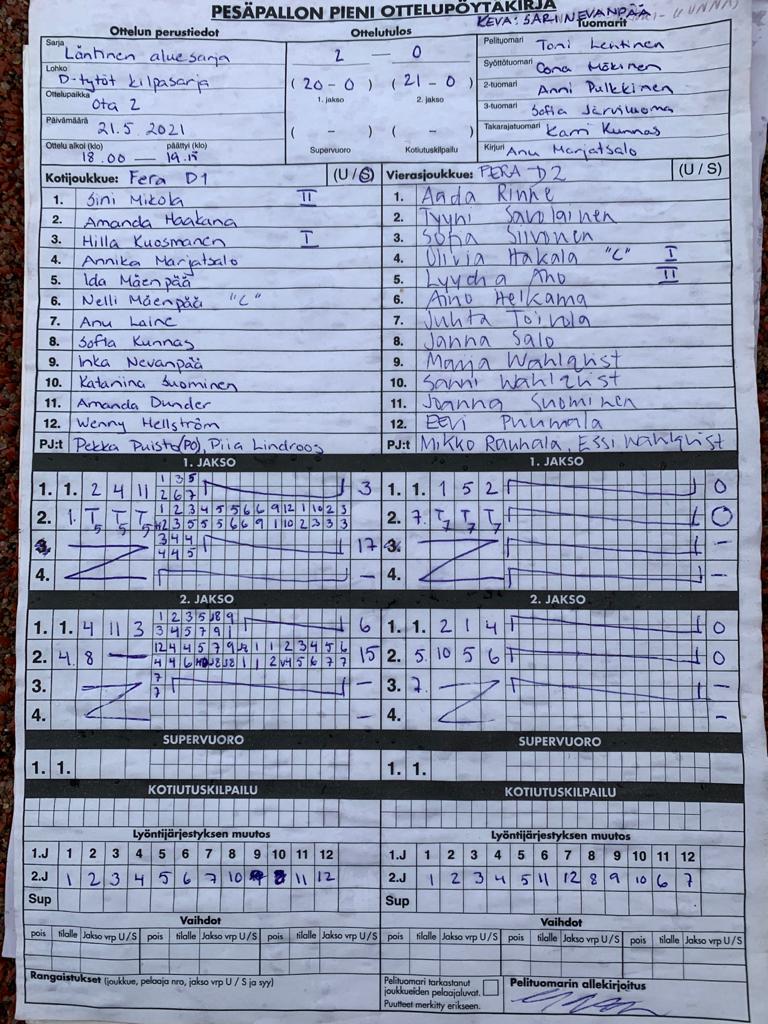 PESÄPALLON PIENI OTTELUPÖYTÄKIRJA
KEVA: SARI NEVANPÄÄ
Ottelun perustiedot
Ottelutulos
Tuomarit
Sarja
Läntinen aluesarja
2 - 0
Pelituomari Toni Lehtinen
Lohko
D-tytöt kilpasarja
( 20 - 0 ) ( 21 - 0 )
1. jakso 2. jakso
Syöttötuomari Oona Mäkinen
Ottelupaikka
Ota 2
2-tuomari Anni Pulkkinen
3-tuomari Sofia Järviluoma
Päivämäärä
21.5 2021
( - ) ( - )
Takarajatuomari Karri Kunnas
Ottelu alkoi (klo) päättyi (klo)
18.00 — 19.15
Supervuoro Kotiutuskilpailu
Kirjuri Anu Marjatsalo
Kotijoukkue: Fera D1 (U / S)
Vierasjoukkue: FERA D2 (U / S)
1. Sini Mikola II
2. Amanda Haakana
3. Hilla Kuosmanen I
4. Annika Marjatsalo
5. Ida Mäenpää
6. Nelli Mäenpää "C"
7. Anu Laine
8. Sofia Kunnas
9. Inka Nevanpää
10. Katariina Suominen
11. Amanda Dunder
12. Wenny Hellström
PJ:t Pekka Puisto(PO), Piia Lindroos
1. Aada Rinne
2. Tyyni Savolainen
3. Sofia Siivonen
4. Olivia Hakala "C" I
5. Lyydia Aho II
6. Aino Heikama
7. Juhta Toivola
8. Janna Salo
9. Marja Wahlqvist
10. Sanni Wahlqvist
11. Joanna Suominen
12. Eevi Puumala
PJ:t Mikko Rauhala, Essi Wahlqvist
1. JAKSO
1. 1. 2 4 11 3
1 3 5
2 6 7
2. 1. T5 T5 T5
1 2 3 4 5 5 6 6 9 12 1 10 2 3
3. 17
3 4 4
4 4 5
4. –
1. JAKSO
1. 1. 1 5 2 0
2. 7. T7 T7 T7 0
3. –
4. –
2. JAKSO
1. 1. 4 11 3 6
3 4 5 7 9 1
2. 4. 8 — 15
3. –
7
7
4. –
2. JAKSO
1. 1. 2 1 4 0
2. 5. 10 5 6 0
3. 7. –
4. –
SUPERVUORO
1. 1.
SUPERVUORO
1. 1.
KOTIUTUSKILPAILU
KOTIUTUSKILPAILU
Lyöntijärjestyksen muutos
1.J 1 2 3 4 5 6 7 8 9 10 11 12
2.J 1 2 3 4 5 6 7 10 9 8 11 12
Sup
Lyöntijärjestyksen muutos
1.J 1 2 3 4 5 6 7 8 9 10 11 12
2.J 1 2 3 4 5 11 12 8 9 10 6 7
Sup
Vaihdot
pois tilalle Jakso vrp U/S pois tilalle Jakso vrp U/S pois tilalle Jakso vrp U/S
Vaihdot
pois tilalle Jakso vrp U/S pois tilalle Jakso vrp U/S pois tilalle Jakso vrp U/S
Rangaistukset (joukkue, pelaaja nro, jakso vrp U / S ja syy)
Pelituomari tarkastanut
joukkueiden pelaajaluvat.
Puutteet merkitty erikseen.
Pelituomarin allekirjoitus